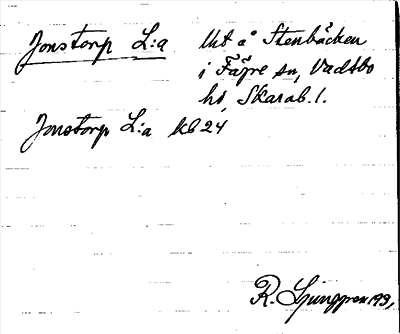 Jonstorp L:a Ut å Stenbäcken
i Fägre sn, Vadsbo
hd, Skarab. l.
Jonstorp L:a kb 24
R. Ljunggren 1931